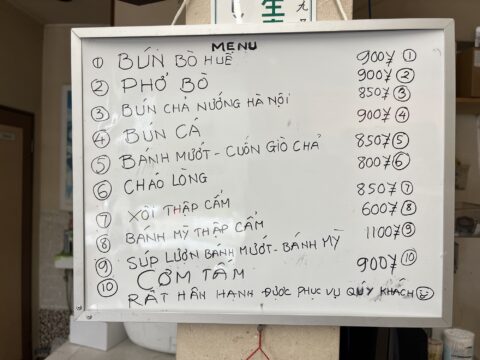 生
MENU
① BÚN BÒ HUẾ 900¥ ①
② PHỞ BÒ 900¥ ②
③ BÚN CHẢ NƯỚNG HÀ NỘI 850¥ ③
④ BÚN CÁ 900¥ ④
⑤ BÁNH MƯỚT - CUỐN GIÒ CHẢ 850¥ ⑤
⑥ CHÁO LÒNG 800¥ ⑥
⑦ XÔI THẬP CẨM 850¥ ⑦
⑧ BÁNH MỲ THẬP CẨM 600¥ ⑧
⑨ SÚP LƯƠN BÁNH MƯỚT - BÁNH MỲ 1100¥ ⑨
⑩ CƠM TẤM 900¥ ⑩
RẤT HÂN HẠNH ĐƯỢC PHỤC VỤ QUÝ KHÁCH